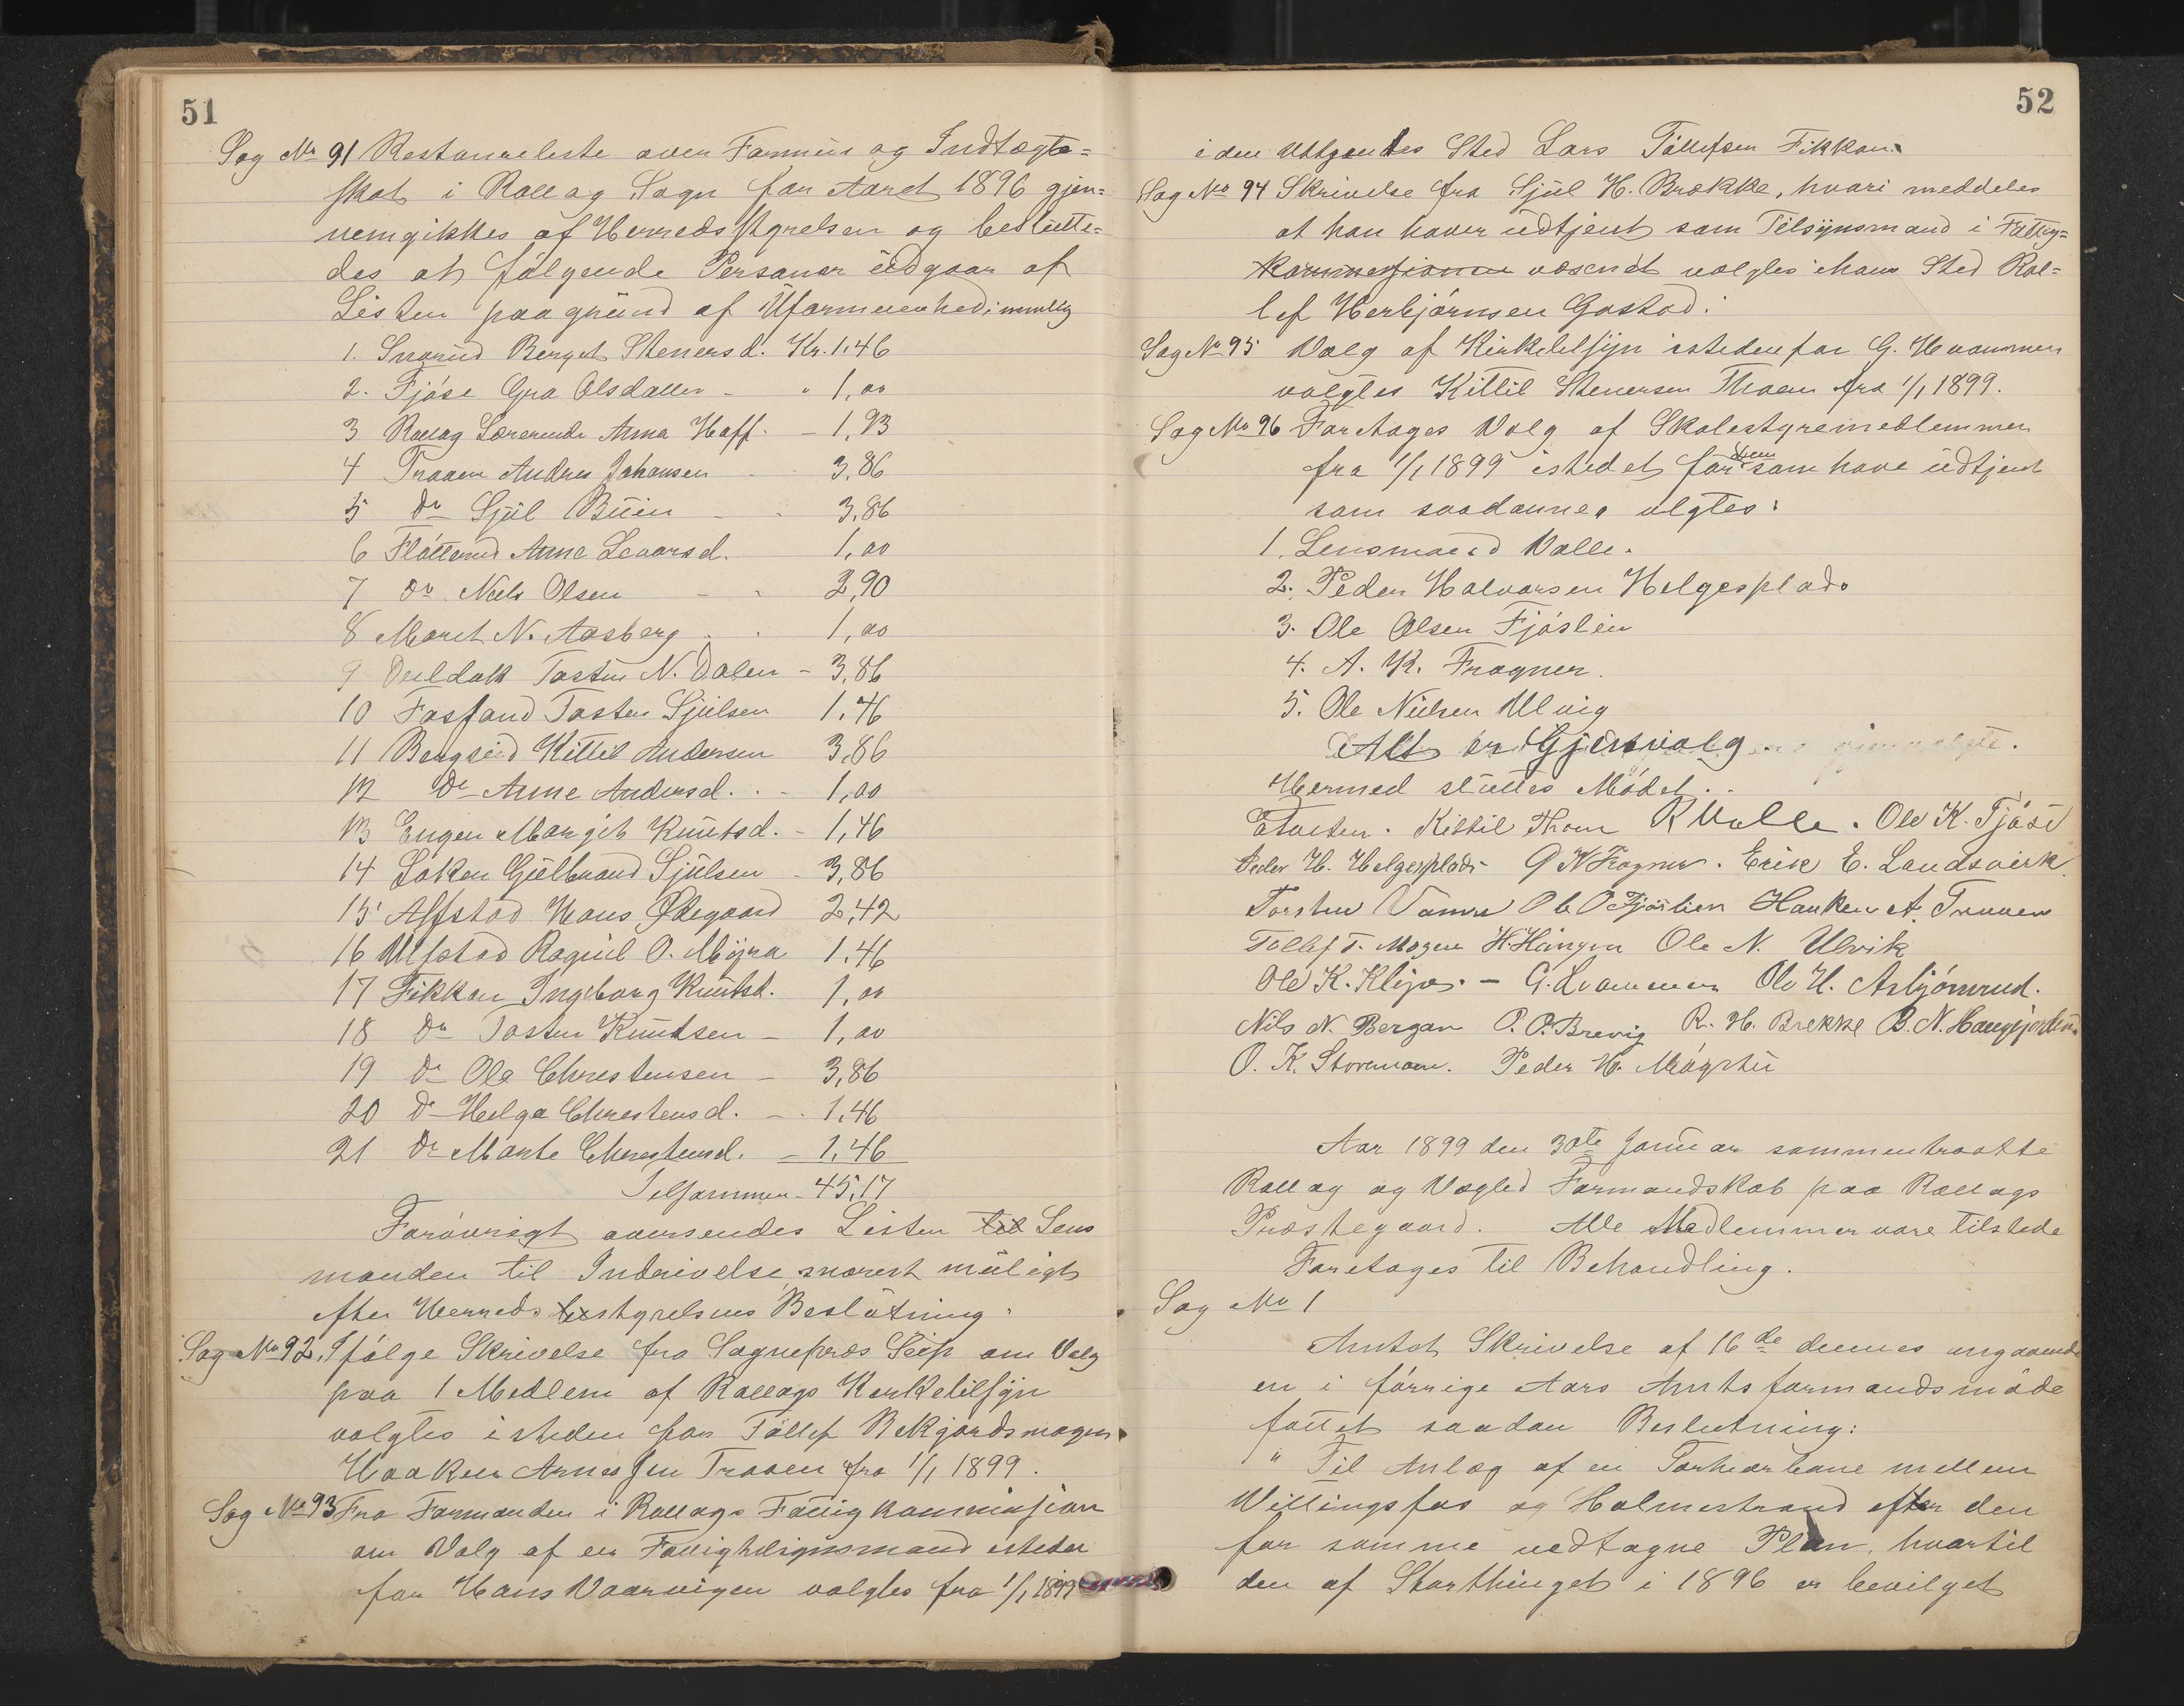 51
Sag No 91 Restanceliste over Formues og Indtægts=
skat i Rollag Sogn for Aaret 1896 gjen=
nemgikkes af Herredsstyrelsen og beslutte=
des at følgende Personer udgaar af
Listen paagrund af Uformuenhed: nemlig
1. Snarud Berget Stenersd. Kr. 1.46
2. Fjøse Gro Olsdatter - " 1,00
3 Rollag Lærerinde Anna Hoff. - 1,93
4 Traaen Andres Johansen - 3,86
5 Do Sjul Buin - 3,86
6 Fløtterud Anne Levorsd. 1,00
7 Do Niels Olsen - - 2,90
8 Marit N. Aasberg - 1,00
9 Tosten N. Dalen - 3,86
10 Tosten Sjulsen 1,46
11 Bergerud Kittil Andersen 3,86
12 Do Anne Andersd. - 1,00
13 Engen Margit Knutsd. - 1,46
14 Løken Gulbrand Sjulsen - 3,86
15 Alfstad Hans Ødegaard 2,42
16 Ulfstad Ragnil O. Myra 1,46
17 Fikkan Ingeborg Knutsd. 1,00
18 Do Tosten Knudsen - 1,00
19 Do Ole Christensen - 3,86
20 Do Helga Christensd. - 1,46
21 Do Marte Christensd. - 1,46
Tilsammen - 45,17
Forøvrigt oversendes Listen til Lens
manden til Inddrivelse snarest muligt
efter Herreds be styrelsens Beslutning.
Sag No 92. Ifølge Skrivelse fra Sognepræs Seip om Valg
paa 1 Medlem af Rollags Kirketilsyn
valgtes isteden for Tollef Bekjordsmogen
Haaken Arnessen Traaen fra 1/1 1899.
Sag No 93 Fra Formanden i Rollags Fattigkommission
om Valg af en Fattigtilsynsmand isteden
for Hans Vaarvigen valgtes fra 1/1 1899
52
i den Udtgaudes Sted Lars Tollefsen Fikkan.
Sag No 94 Skrivelse fra Sjul H. Brække, hvori meddeles
at han haver udtjent som Tilsynsmand i Fattig=
kommissionen væsenet valgtes i hans Sted Rol=
lef Herbjørnsen Gostad.
Sag No 95 Valg af Kirketilsyn istedenfor G. Hvammen
valgtes Kittil Stenersen Thoen fra 1/1 1899.
Sag No 96 Foretages Valg af Skolestyremedlemmer
fra 1/1 1899 istedet for dem som have udtjent
som saadanne valgtes:
1. Lensmand Valle.
2. Peder Halvorsen Helgesplads
3. Ole Olsen Fjøslien
4. A. K. Fragner.
5. Ole Nielsen Ulvig
Alt er Gjenvalg
Hermed sluttes Mødet.
Kittil Thoen R Valle. Ole K. Fjøse
Peder H. Helgesplads A K Fragner. Erik E. Landsverk
Torsten Ole O Fjøslien Haaken A. Traaen
Tollef T. Mogen Ole N. Ulvik
Ole K. Kligas. - G. Hvammen Ole H. Asbjørnrud.
Nils N. Bergan O. O. Brevig R. H. Brekke B. N. Haugejordet
O. K. Stormoen. Peder H. Møgstu
Aar 1899 den 30te Januar sammentraatte
Rollag og Vegli Formandskab paa Rollags
Præstegaard. Alle Medlemmer vare tilstede
Foretages til Behandling.
Sag No 1
Amtets Skrivelse af 16de dennes angaaende
en i forrige Aars Amtsformandsmøde
fattet saadan Beslutning:
" Til Anlæg af en Tørhiarbane mellem
Wittingsfos og Holmestrand efter den
for samme vedtagne Plan, hvortil
den af Storthinget i 1896 er bevilget